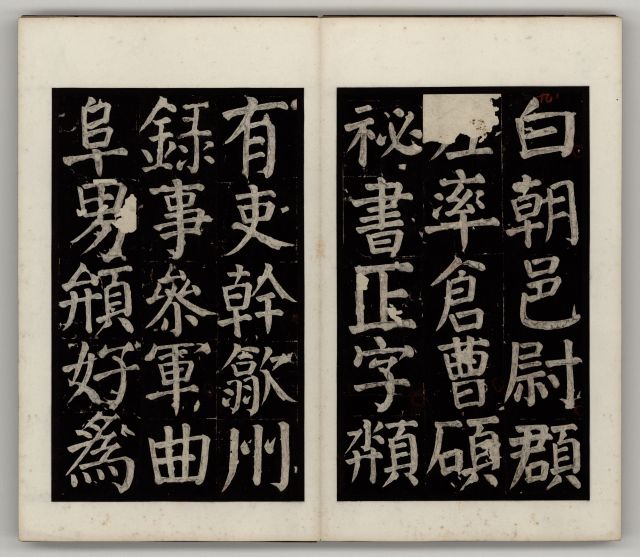 白朝邑尉頵
左率倉曹碩
祕書正字
有吏幹歙州
錄事參軍曲
阜男頩好為